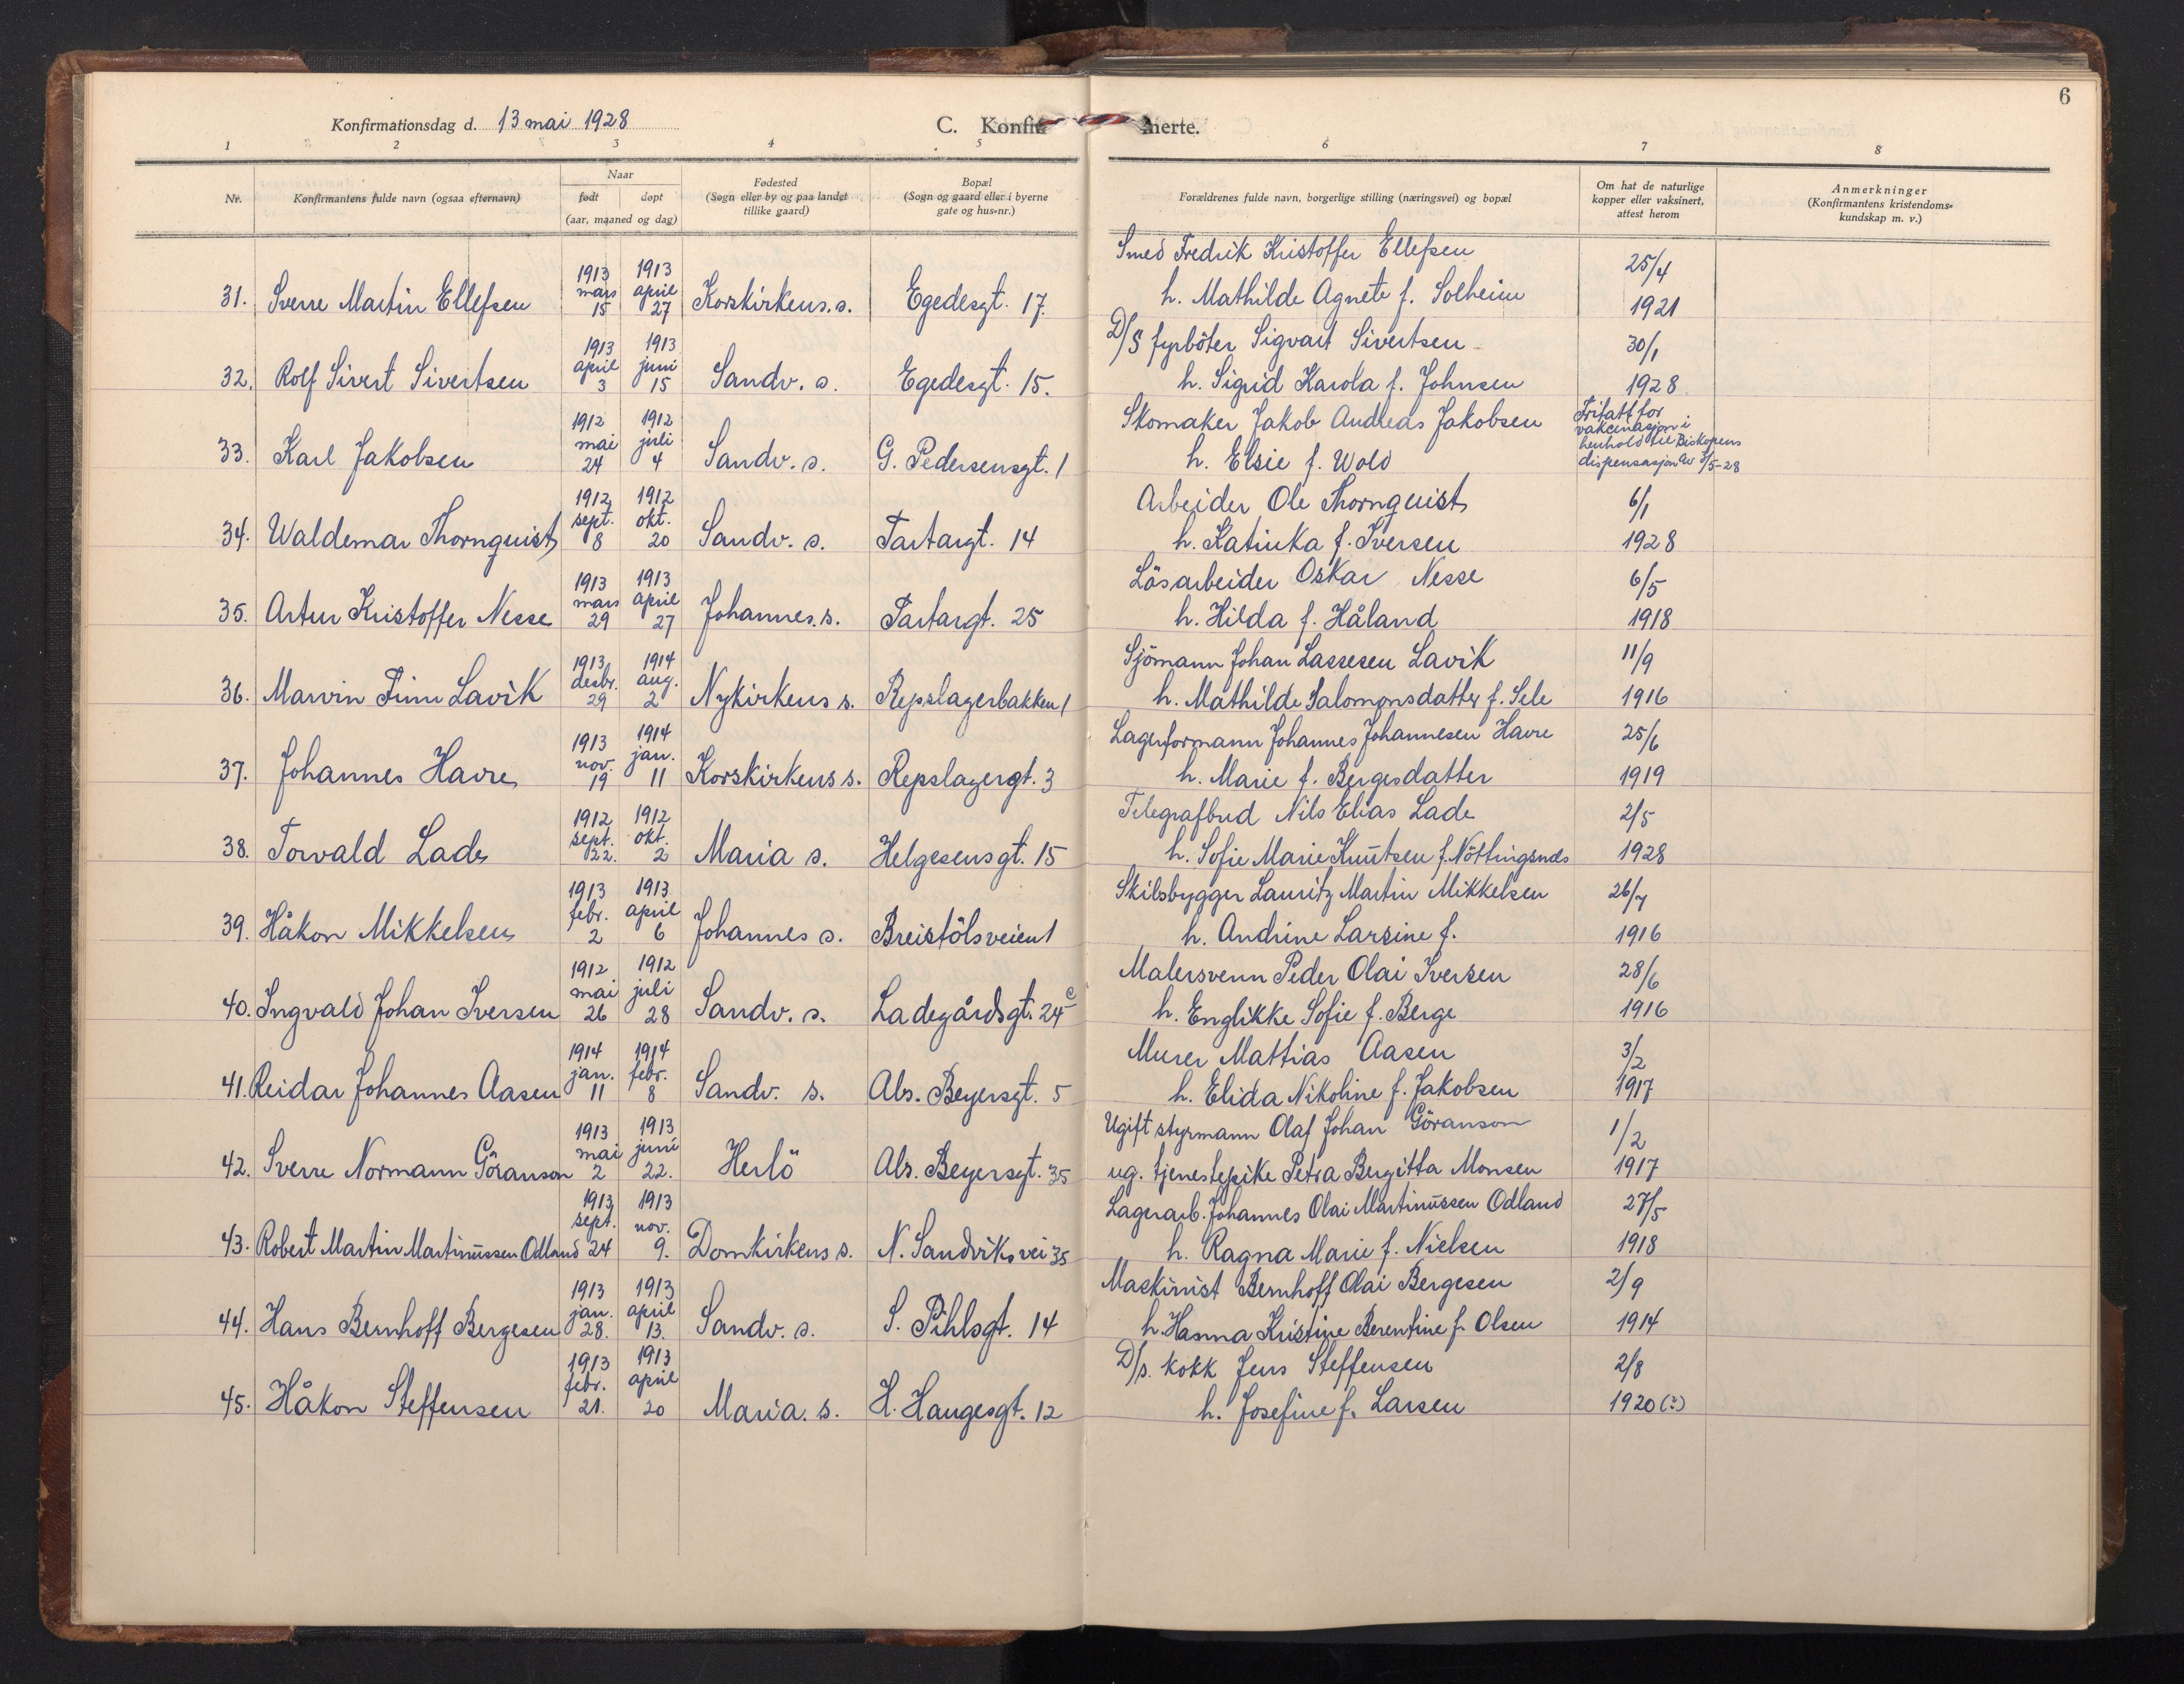 6
Konfirmationsdag d. 13 mai 1928
C. Konfir merte.
1 2 3 4 5 6 7 8
Nr.
Konfirmantens fulde navn (ogsaa efternavn)
Naar
født døpt
(aar, maaned og dag)
Fødested
(Sogn eller by og paa landet
tillike gaard)
Bopæl
(Sogn og gaard eller i byerne
gate og hus-nr.)
Forældrenes fulde navn, borgerlige stilling (næringsvei) og bopæl
Om hat de naturlige
kopper eller vaksinert,
attest herom
Anmerkninger
(Konfirmantens kristendoms-
kundskap m. v.)
1913 1913 Smed Fredrik Kristoffer Ellefsen 25/4
mars april
31. Sverre Martin Ellefsen 15 27 Korskirkens. s. Egedesgt. 17. h. Mathilde Agnete f. Solheim 1921
1913 1913 D/S fyrböter Sigvart Sivertsen 30/1
april juni
32. Rolf Sivert Sivertsen 3 15 Sandv. s. Egedesgt. 15. h. Sigrid Karola f. Johnsen 1928
1912 1912 Skomaker Jakob Andreas Jakobsen Fritatt for
vakcinasjon i
mai juli henhold til Biskopens
33. Karl Jakobsen 24 4 Sandv. s. G. Pedersensgt. 1 h. Elsie f. Wold dispensasjon av /5-28
1912 1912 Arbeider Ole Thornquist 6/1
sept. okt.
34. Waldemar Thornquist 8 20 Sandv. s. Tartargt. 14 h. Katinka f. Iversen 1928
1913 1913 Lösarbeider Oskar Nesse 6/5
mars april
35. Artur Kristoffer Nesse 29 27 Johannes. s. Tartargt. 25 h. Hilda f. Håland 1918
1913 1914 Sjömann Johan Lassesen Lavik 11/9
desbr. aug.
36. Marvin Finn Lavik 29 2 Nykirkens s. Repslagerbakken 1 h. Mathilde Salomonsdatter f. Sele 1916
1913 1914 Lagerformann Johannes Johannesen Havre 25/6
nov. jan.
37. Johannes Havre 19 11 Korskirkens s. Repslagergt. 3 h. Marie f. Bergesdatter 1919
1912 1912 Telegrafbud Nils Elias Lade 2/5
sept. okt.
38. Torvald Lade 22. 2 Maria s. Helgesensgt. 15 h. Sofie Marie Knutsen f. Nöttingsnes 1928
1913 1913 Skibsbygger Lauritz Martin Mikkelsen 26/7
febr. april
39. Håkon Mikkelsen 2 6 Johannes s. Breistölsveien 1 h. Andrine Larsine f. 1916
1912 1912 Malersvenn Peder Olai Iversen 28/6
mai juli
40. Ingvald Johan Iversen 26 28 Sandv. s. Ladegårdsgt. 24 c h. Englikke Sofie f. Berge 1916
1914 1914 Murer Mattias Aasen 3/2
jan. febr.
41. Reidar Johannes Aasen 11 8 Sandv. s. Abs. Beyersgt. 5 h. Elida Nikoline f. Jakobsen 1917
1913 1913 Ugift styrmann Olaf Johan Göranson 1/2
mai juni
42. Sverre Normann Göranson 2 22. Herlö Abs. Beyersgt. 35 ug. tjenestepike Petra Bergitta Monsen 1917
1913 1913 Lagerarb. Johannes Olai Martinussen Odland 27/5
sept. nov.
43. Robert Martin Martinussen Odland 24 9. Domkirkens s. N. Sandviksvei 35 h. Ragna Marie f. Nielsen 1918
1913 1913 Maskinist Bernhoff Olai Bergesen 2/9
jan. april
44. Hans Bernhoff Bergesen 28. 13. Sandv. s. S. Pihlsgt. 14 h. Hanna Kristine Berentine f. Olsen 1914
1913 1913 D/s. kokk Jens Steffensen 2/8
febr. april
45. Håkon Steffensen 21. 20 Maria. s. H. Haugesgt. 12 h. Josefine f. Larsen 1920 (?)